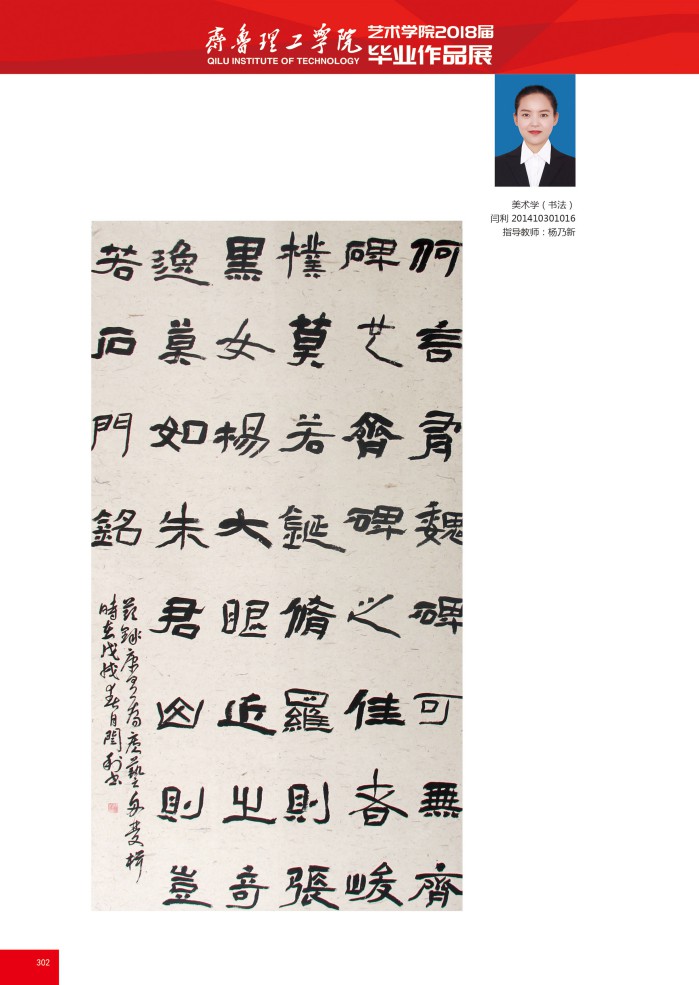 齊魯理工學院
QILU INSTITUTE OF TECHNOLOGY
艺术学院2018届
毕业作品展
美术学（书法）
闫利 201410301016
指导教师：杨乃新
何言有魏碑可無齊
碑也齊碑之佳者峻
樸莫若脩羅則張
黑女楊大眼近之奇
逸莫如朱君山則豈
若石門銘
錄康有為廣藝舟雙楫
時在戊戌春月閆利書
302